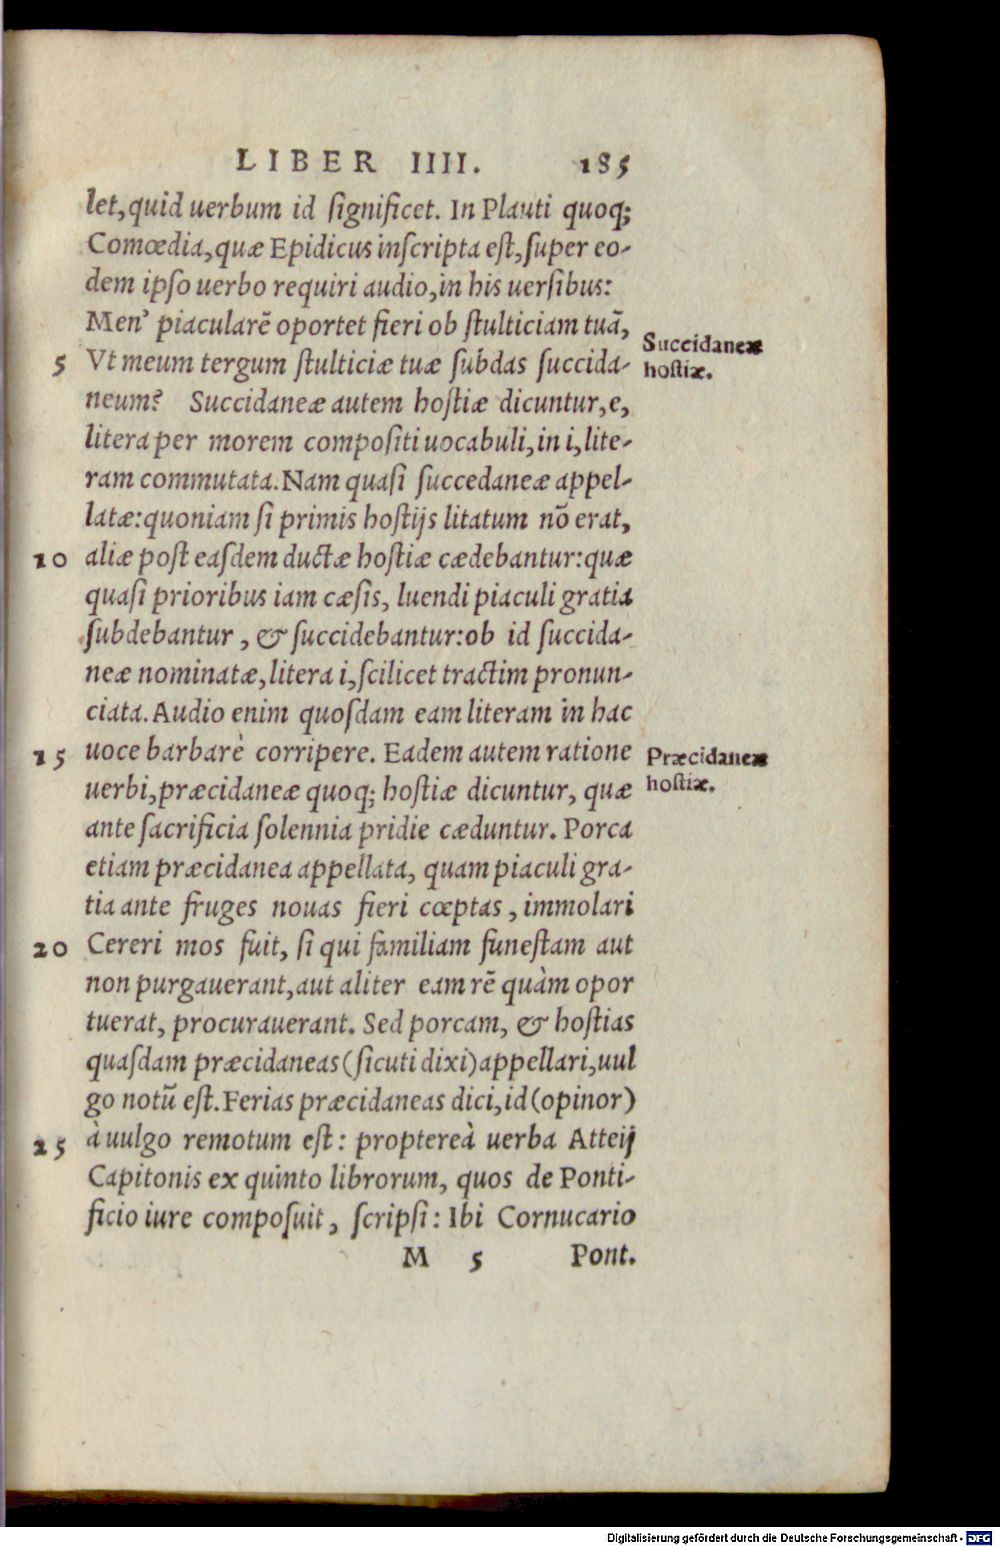 LIBER IIII. 185
let, quid uerbum id ſignificet. In Plauti quoq;
Comœdia, quæ Epidicus inſcripta eſt, ſuper eo-
dem ipſo uerbo requiri audio, in his uerſibus:
Men' piacularē oportet fieri ob ſtulticiam tuā,
Succidaneæ
hoſtiæ.
5 Vt meum tergum ſtulticiæ tuæ ſubdas ſuccida-
neum? Succidaneæ autem hoſtiæ dicuntur, e,
litera per morem compoſiti uocabuli, in i, lite-
ram commutata. Nam quaſi ſuccedaneæ appel-
latæ: quoniam ſi primis hoſtijs litatum nō erat,
10 aliæ poſt eaſdem ductæ hoſtiæ cædebantur: quæ
quaſi prioribus iam cæſis, luendi piaculi gratia
ſubdebantur, & ſuccidebantur: ob id ſuccida-
neæ nominatæ, litera i, ſcilicet tractim pronun-
ciata. Audio enim quoſdam eam literam in hac
15 uoce barbarè corripere. Eadem autem ratione
Præcidaneæ
hoſtiæ.
uerbi, præcidaneæ quoq; hoſtiæ dicuntur, quæ
ante ſacrificia ſolennia pridie cæduntur. Porca
etiam præcidanea appellata, quam piaculi gra-
tia ante fruges nouas fieri cœptas, immolari
20 Cereri mos fuit, ſi qui familiam funeſtam aut
non purgauerant, aut aliter eam rē quàm opor
tuerat, procurauerant. Sed porcam, & hoſtias
quaſdam præcidaneas (ſicuti dixi) appellari, uul
go notū eſt. Ferias præcidaneas dici, id (opinor)
25 à uulgo remotum eſt: proptereà uerba Atteij
Capitonis ex quinto librorum, quos de Ponti-
ficio iure compoſuit, ſcripſi: Ibi Cornucario
M 5 Pont.
Digitalisierung gefördert durch die Deutsche Forschungsgemeinschaft - DFG